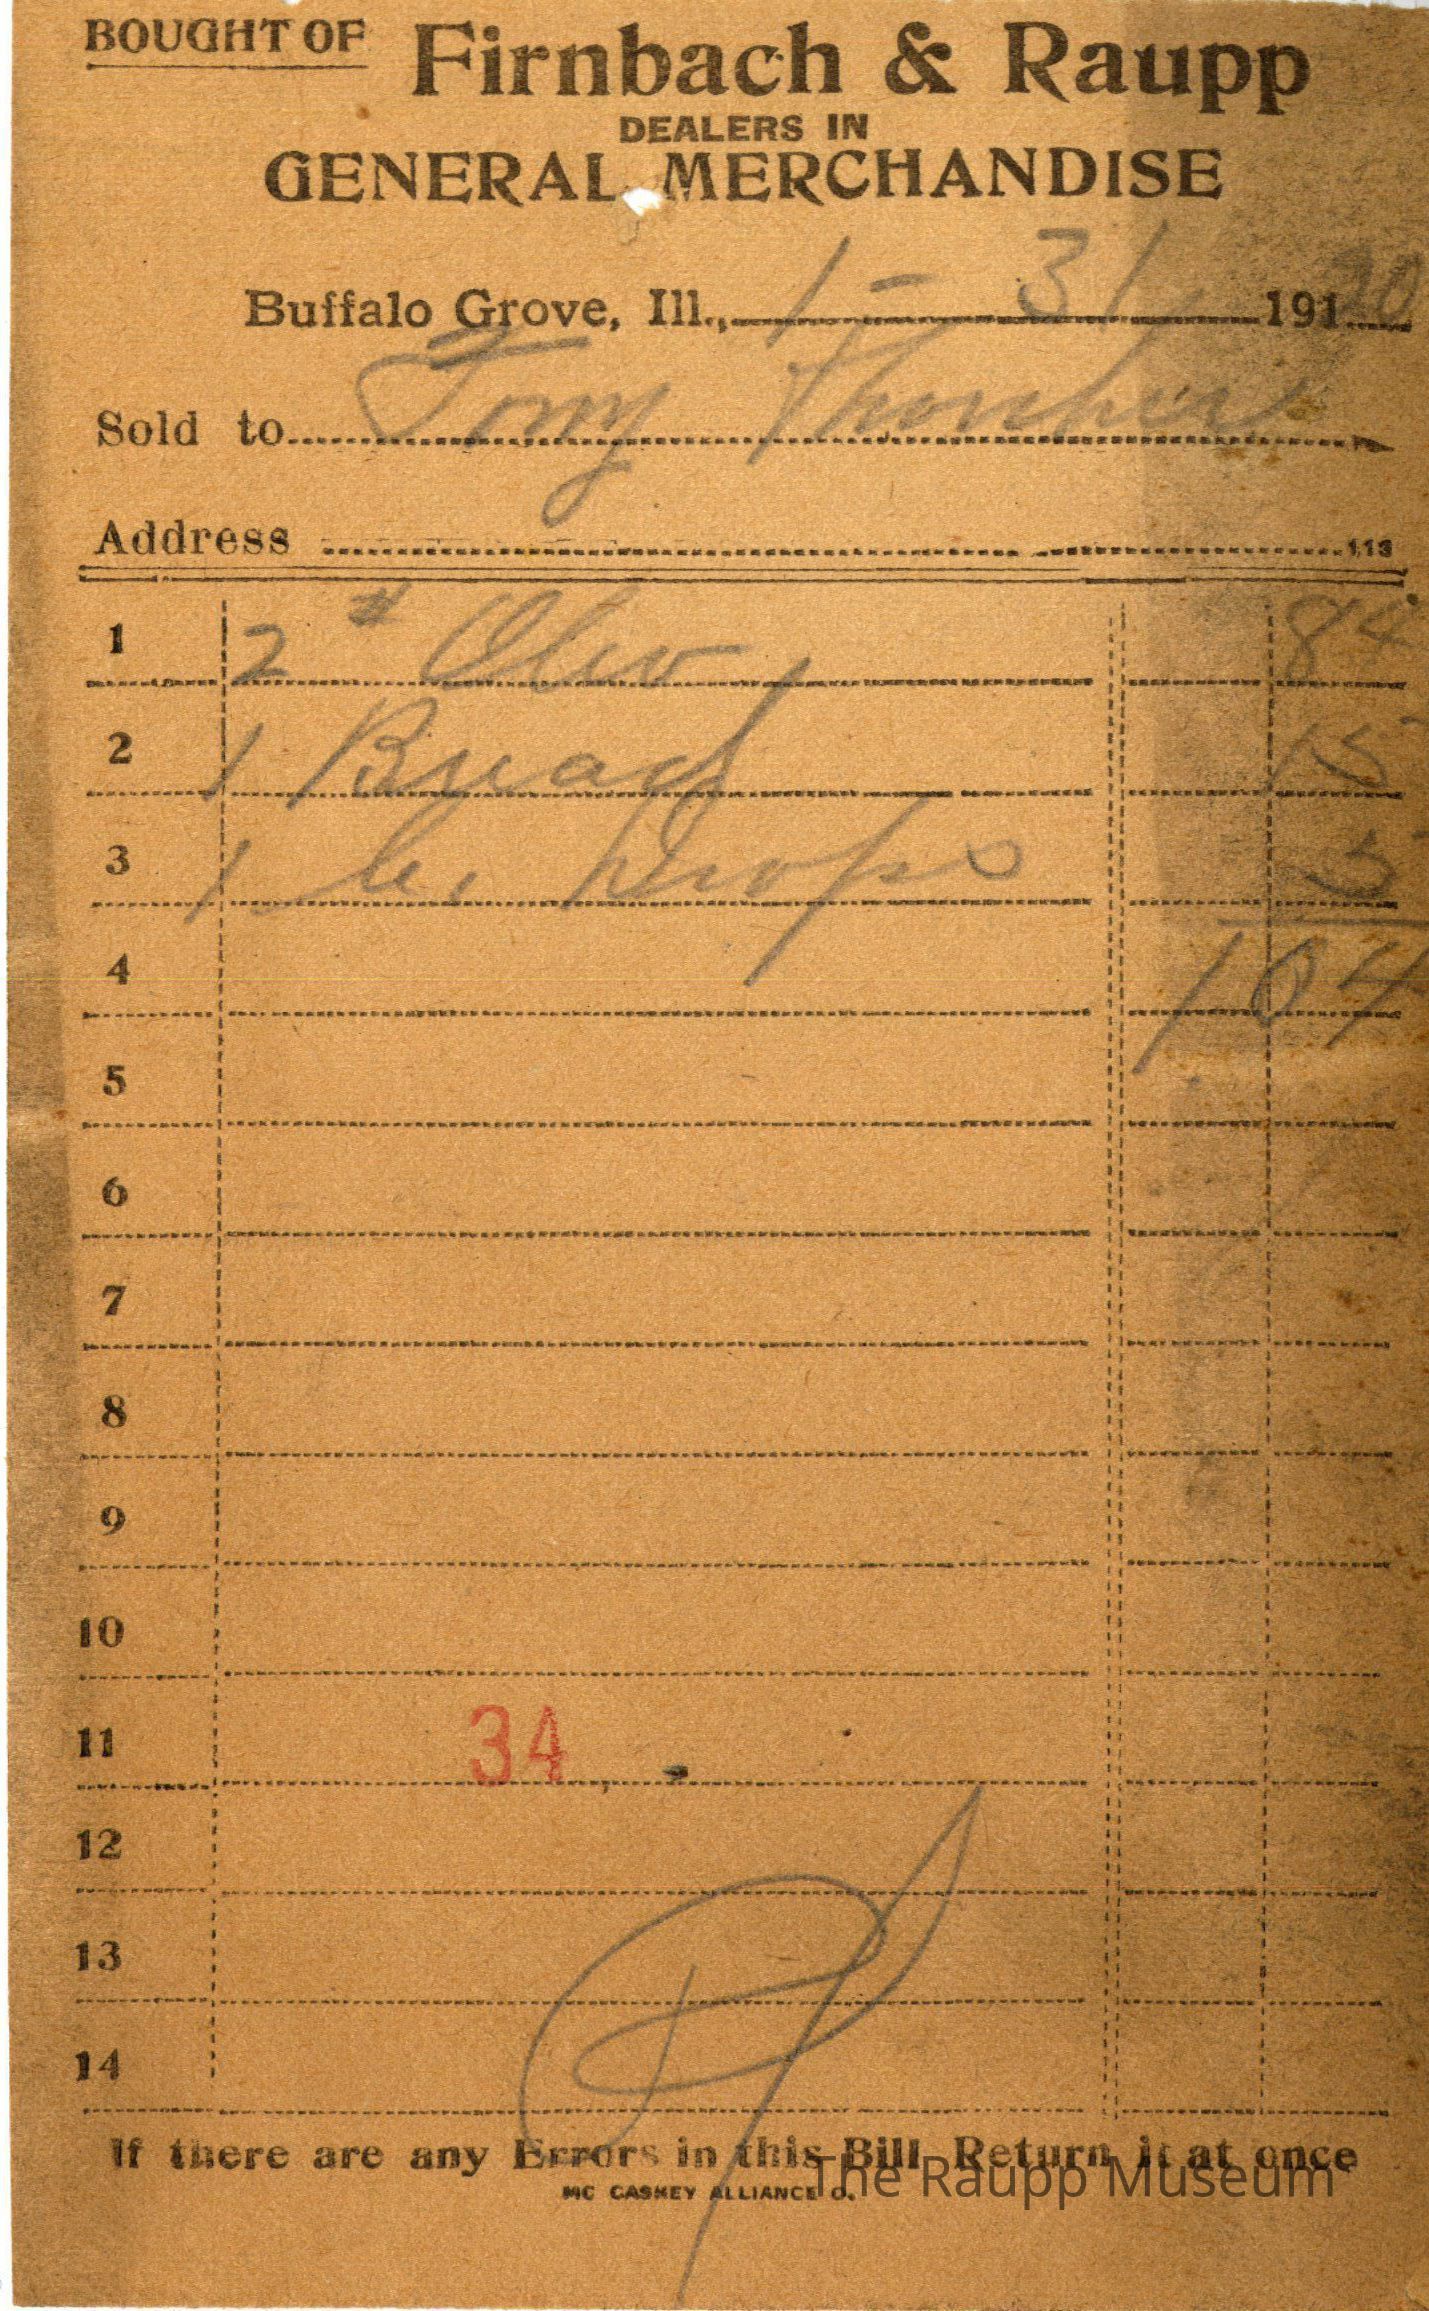 BOUGHT OF Firnbach & Raupp
DEALERS IN
GENERAL MERCHANDISE
Buffalo Grove, Ill., 1 - 31 191 20
Sold to Tony
Address 113
1 2 # Oleo 84
2 1 Bread 15
3 1 Drops 5
4 104
5
6
7
8
9
10
11 34
12
13
14
If there are any Errors in this Bill Return it at once
MC CASKEY ALLIANCE O.
The Raupp Museum